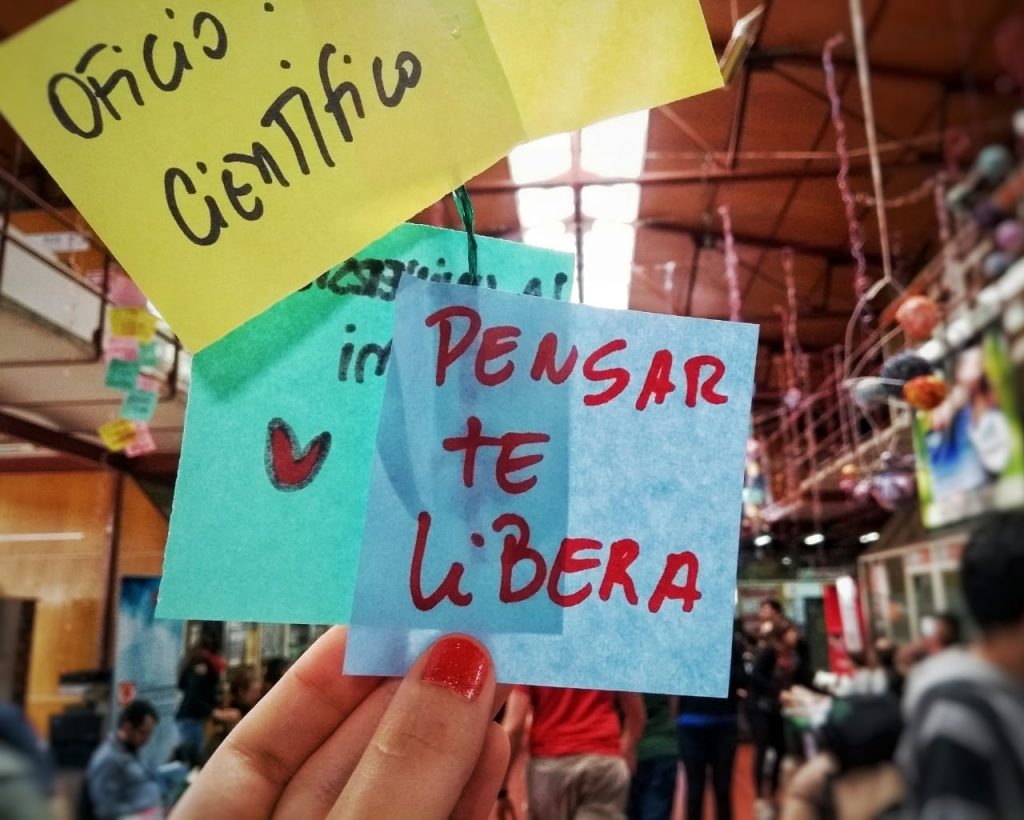 Oficio:
Científico
im
PENSAR
TE
LiBERA